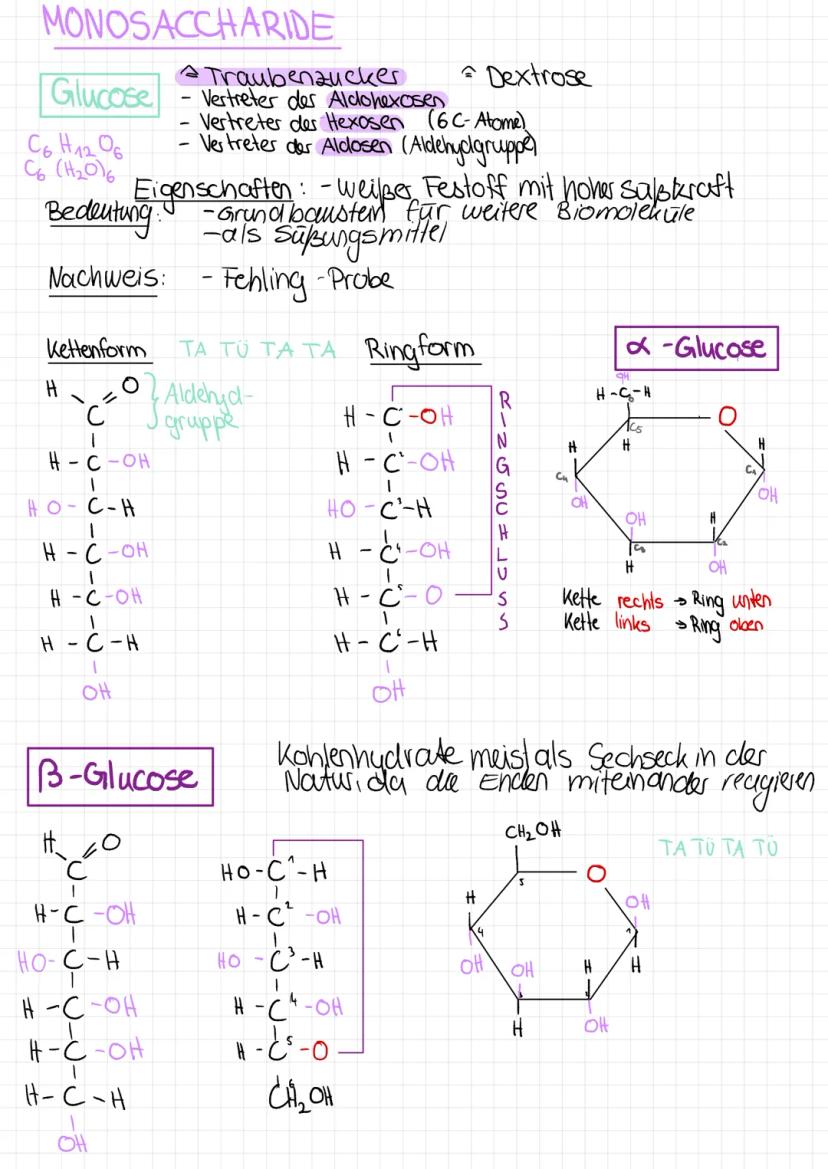 MONOSACCHARIDE
Glucose
≙ Traubenzucker ≙ Dextrose
- Vertreter der Aldohexosen
- Vertreter des Hexosen (6 C-Atome)
- Vertreter der Aldosen (Aldehydgruppe)
C6 H12 O6
C6 (H2O)6
Eigenschaften: - weißer Festoff mit hoher Süßkraft
Bedeutung: - Grundbaustein für weitere Biomoleküle
- als Süßungsmittel
Nachweis: - Fehling - Probe
Kettenform TA TÜ TA TA Ringform
α - Glucose
H O
C
Aldehyd-
gruppe
H - C - OH
HO - C - H
H - C - OH
H - C - OH
H - C - H
OH
H - C - OH
H - C² - OH
HO - C³ - H
H - C⁴ - OH
H - C⁵ - O
H - C⁶ - H
OH
RINGSCHLUSS
OH
H - C6 - H
C5
O
H
H
H
C4
C1
OH
OH
OH
H
C3
C2
H
OH
Kette rechts → Ring unten
Kette links → Ring oben
β - Glucose
Kohlenhydrate meist als Sechseck in der
Natur, da die Enden miteinander reagieren
H O
C
H - C - OH
HO - C - H
H - C - OH
H - C - OH
H - C - H
OH
HO - C¹ - H
H - C² - OH
HO - C³ - H
H - C⁴ - OH
H - C⁵ - O
C⁶H2OH
CH2OH
TA TÜ TA TÜ
5
O
H
OH
4
1
OH
OH
H
H
3
2
H
OH